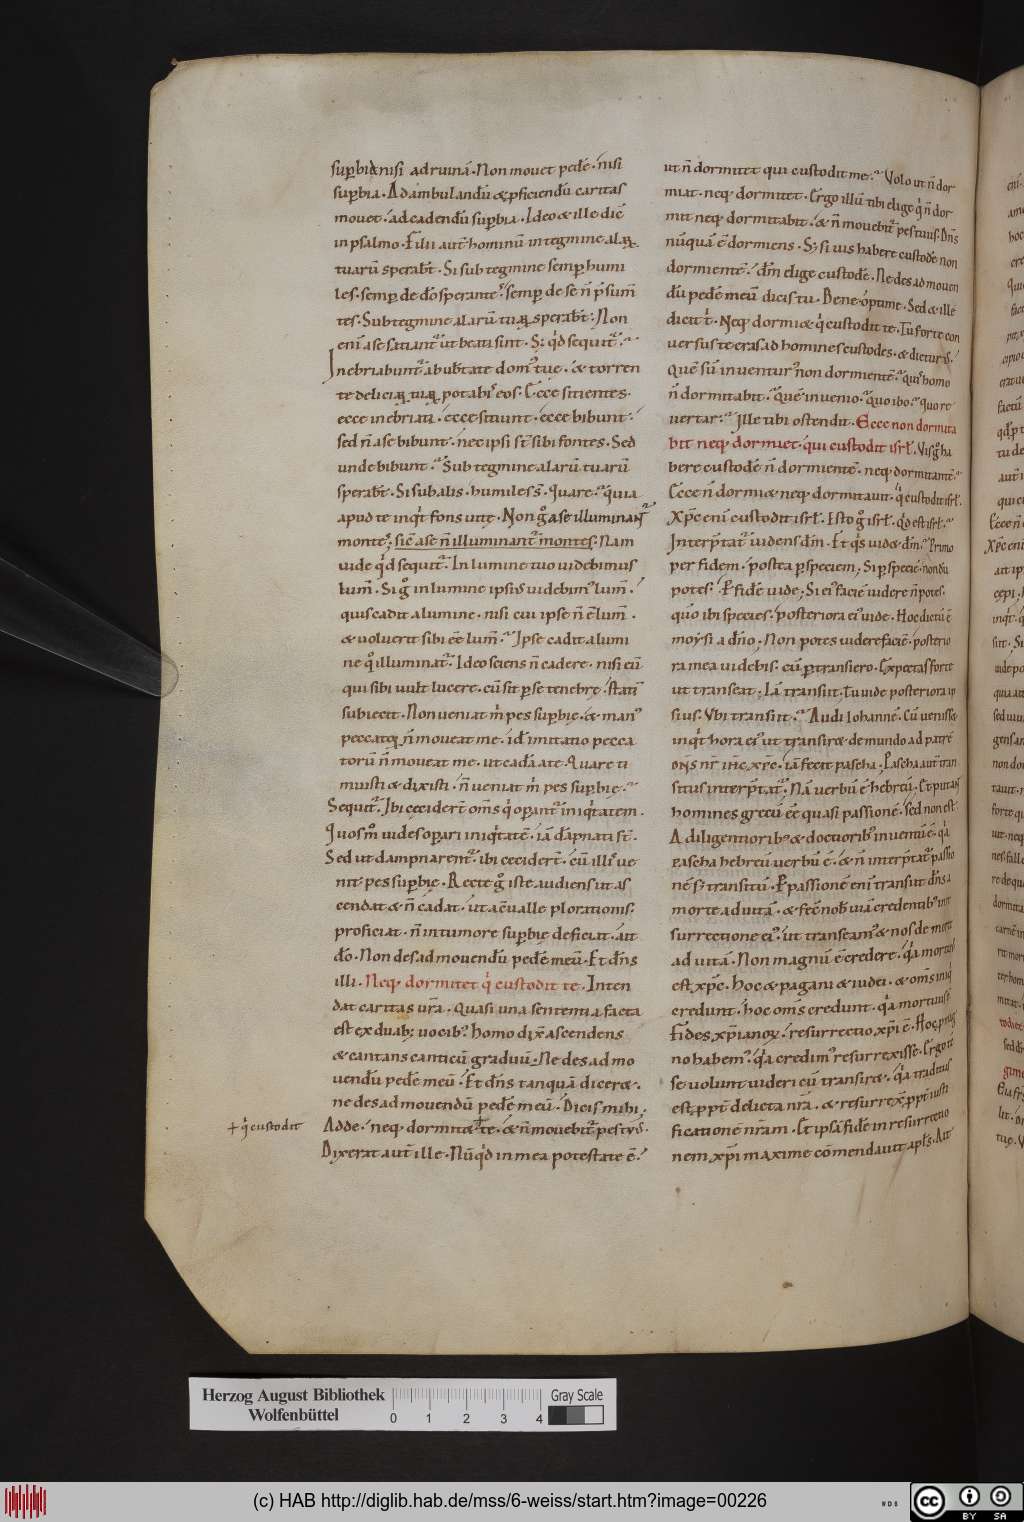 suꝑbia nisi ad ruinā · Non mouet pedē · nisi
suꝑbia · Ad ambulandū & ꝓficiendū caritas
mouet · ad cadendū suꝑbia · Ideo & ille dic̄
in psalmo · Filii aut̄ hominū in tegmine alaꝝ
tuarū sperab̄t · Si sub tegmine semꝑ humi
les · semꝑ de dō sperantes · semꝑ de se n̄ p̄sum̄
tes · Sub tegmine alarū tuaꝝ sperab̄t · Non
enī a se satiant᷒ ut beati sint · Sꝫ qd̄ sequit᷒
Inebriabunt᷒ ab ub̄tate dom᷒ tuę · & torren
te deliciaꝝ tuaꝝ potabis eos · Ecce sitientes
ecce inebriati · ecce sitiunt · ecce bibunt ·
sed n̄ a se bibunt · nec ipsi st̄ sibi fontes · Sed
unde bibunt · Sub tegmine alarū tuarū
sperab̄t · Si sub alis · humiles s̄ · Quare · quia
apud te inqt fons uitę · Non g a se illuminant᷒
montes · sic̄ a se n̄ illuminant᷒ montes · Nam
uide qd̄ sequit᷒ · In lumine tuo uidebimus
lum̄ · Si g in lumine ipsius uidebim᷒ lum̄ ·
quis cadit a lumine · nisi cui ipse n̄ ē lum̄ ·
& uoluerit sibi ēe lum̄ · Ipse cadit a lumi
ne qo illuminat᷒ · Ideo sciens n̄ cadere · nisi eū
qui sibi uult lucere · cū sit ꝑ se tenebrę · statī
subiecit · Non ueniat m pes suꝑbię · & man᷒
peccatoꝝ n̄ moueat me · id ē imitatio pecca
torū n̄ moueat me · ut cadā a te · Quare ti
muisti & dixisti · n̄ ueniat m pes suꝑbię ·
Sequit᷒ · Ibi cecider̄t om̄s q oꝑant᷒ iniqtatem ·
Quos m uides oꝑari iniqtatē · iā dāpnati st̄ ·
Sed ut dampnarent᷒ · ibi cecider̄t · cū illis ue
nit pes suꝑbię · Recte g iste audiens ut as
cendat & n̄ cadat · ut a cūalle plorationis
proficiat · n̄ in tumore suꝑbię deficiat · ait
dō · Non des ad mouendū pedē meū · Et dn̄s
illi · Neq dormitet q custodit te · Inten
dat caritas ur̄a · Quasi una sententia facta
est ex duabꝫ uocib᷒ · homo dix̄ ascendens
& cantans canticū graduū · Ne des ad mo
uendū pedē meū · Et dn̄s tanquā dicer& ·
ne des ad mouendū pedē meū · Dicis mihi ·
+ q custodit
Adde · neq dormit& + te · & n̄ mouebit᷒ pes tuus ·
Dixerat aut̄ ille · Nūqd in mea potestate ē
ut n̄ dormitet qui custodit me · Volo ut n̄ dor
miat · neq dormitet · Ergo illū tibi elige q n̄ dor
mit neq dormitabit · & n̄ mouebit᷒ pes tuus · Dn̄s
nūquā ē dormiens · Sꝫ si uis habere custodē non
dormientē · dm̄ elige custodē · Ne des ad mouen
dū pedē meū dicis tu · Bene · optime · Sed & ille
dicit t · Neq dormi& q custodit te · Tu forte con
uersus te eras ad homines custodes · & dicturus
Quē sū inuenturus non dormientē · quis homo
n̄ dormitabit · quē inuenio · quo ibo · quo re
uertar · Ille tibi ostendit · Ecce non dormita
bit neq dormiet · qui custodit isrl̄ · Vis g ha
bere custodē n̄ dormientē · neq dormitantē ·
Ecce n̄ dormi& neq dormitauit · q custodit isrl̄ ·
Xp̄c enī custodit isrl̄ · Esto g isrl̄ · qd̄ est isrl̄ ·
Interp̄tat᷒ uidens dm̄ · Et qs uid& dm̄ · Primo
per fidem · postea ꝑ speciem · Si ꝑ speciē · nondū
potes · ꝑ fidē uide · Si ei᷒ faciē uidere n̄ potes ·
quō ibi species · posteriora ei᷒ uide · Hoc dictū ē
moysi a dn̄o · Non potes uidere faciē · posterio
ra mea uidebis · cū ꝑtransiero · Expectas forte
ut transeat · Iā transiit · tu uide posteriora ip
sius · Vbi transiit · Audi Iohannē · Cū uenisset
inqt hora ei᷒ ut transir& de mundo ad patrē
dn̄s nr̄ ih̄c xp̄c · iā fecit pascha · Pascha aut̄ tran
situs interp̄tat᷒ · Nā uerbū ē hebreū · Et putant
homines grecū ēe quasi passionē · sed non est ·
A diligentiorib᷒ & doctiorib᷒ inuentū ē · qa
pascha hebreū uerbū ē · & n̄ interp̄tat᷒ passio
nē s transitū · ꝑ passionē enī transiit dn̄s a
morte ad uitā · & fec̄ nob uiā credentib᷒ in re
surrectione ei᷒ · ut transeam᷒ & nos de morte
ad uitā · Non magnū ē credere · qa mortuus
est xp̄c · Hoc & pagani & iudei · & om̄s iniqui
credunt · hoc om̄s credunt · qa mortuus ē
Fides xp̄ianoꝝ · resurrectio xp̄i ē · Hoc p mag
no habem᷒ · qa credim᷒ resurrexisse · Ergo te
se uoluit uideri cū transir& · qa traditus
est ꝓpt̄ delicta nr̄a · & resurrex̄ ꝓpt̄ iusti
ficationē nr̄am · Et ipsā fidē in resurrectio
nem xp̄i maxime cōmendauit apls · Ait
Herzog August Bibliothek
Wolfenbüttel
0 1 2 3 4
Gray Scale
(c) HAB http://diglib.hab.de/mss/6-weiss/start.htm?image=00226
WDB
cc BY SA